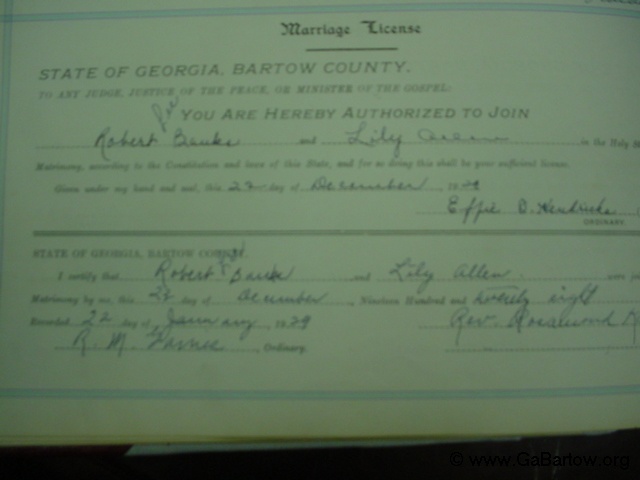 Marriage License
STATE OF GEORGIA, BARTOW COUNTY.
TO ANY JUDGE, JUSTICE OF THE PEACE, OR MINISTER OF THE GOSPEL:
YOU ARE HEREBY AUTHORIZED TO JOIN
Robert Banks and Lily in the Holy
Matrimony, according to the Constitution and laws of this State, and for so doing this shall be your sufficient license.
Given under my hand and seal, this 22 day of December, 1928
Effie B. Hendricks
ORDINARY.
STATE OF GEORGIA, BARTOW COUNTY.
I certify that Robert Banks and Lily Allen were
Matrimony by me, this day of December, Nineteen Hundred and twenty eight
Recorded 22 day of January, 1929 Rev.
R. M. Ordinary.
© www.GaBartow.org